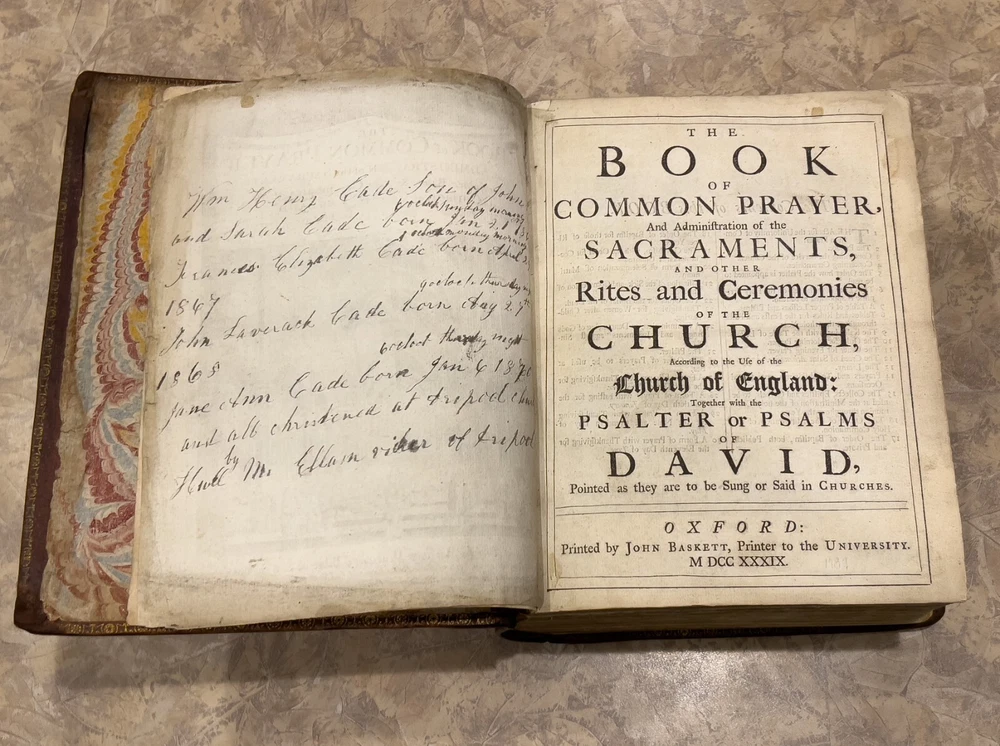 Wm Henry Cade Son of John
oclock sunday morning
and Sarah Cade born Jan
oclock monday morning
Frances Elizabeth Cade born April
1867
oclock thursday
John Laverack Cade born Aug 29
1868
oclock thursday night
Jane Ann Cade born Jan 6 1870
and all christened at tripod church
Hull by Mr Ellam vicker of tripod
THE
BOOK
OF
COMMON PRAYER,
And Adminiſtration of the
SACRAMENTS,
AND OTHER
Rites and Ceremonies
OF THE
CHURCH,
According to the Uſe of the
Church of England:
Together with the
PSALTER or PSALMS
OF
DAVID,
Pointed as they are to be Sung or Said in CHURCHES.
OXFORD:
Printed by JOHN BASKETT, Printer to the UNIVERSITY.
M DCC XXXIX.